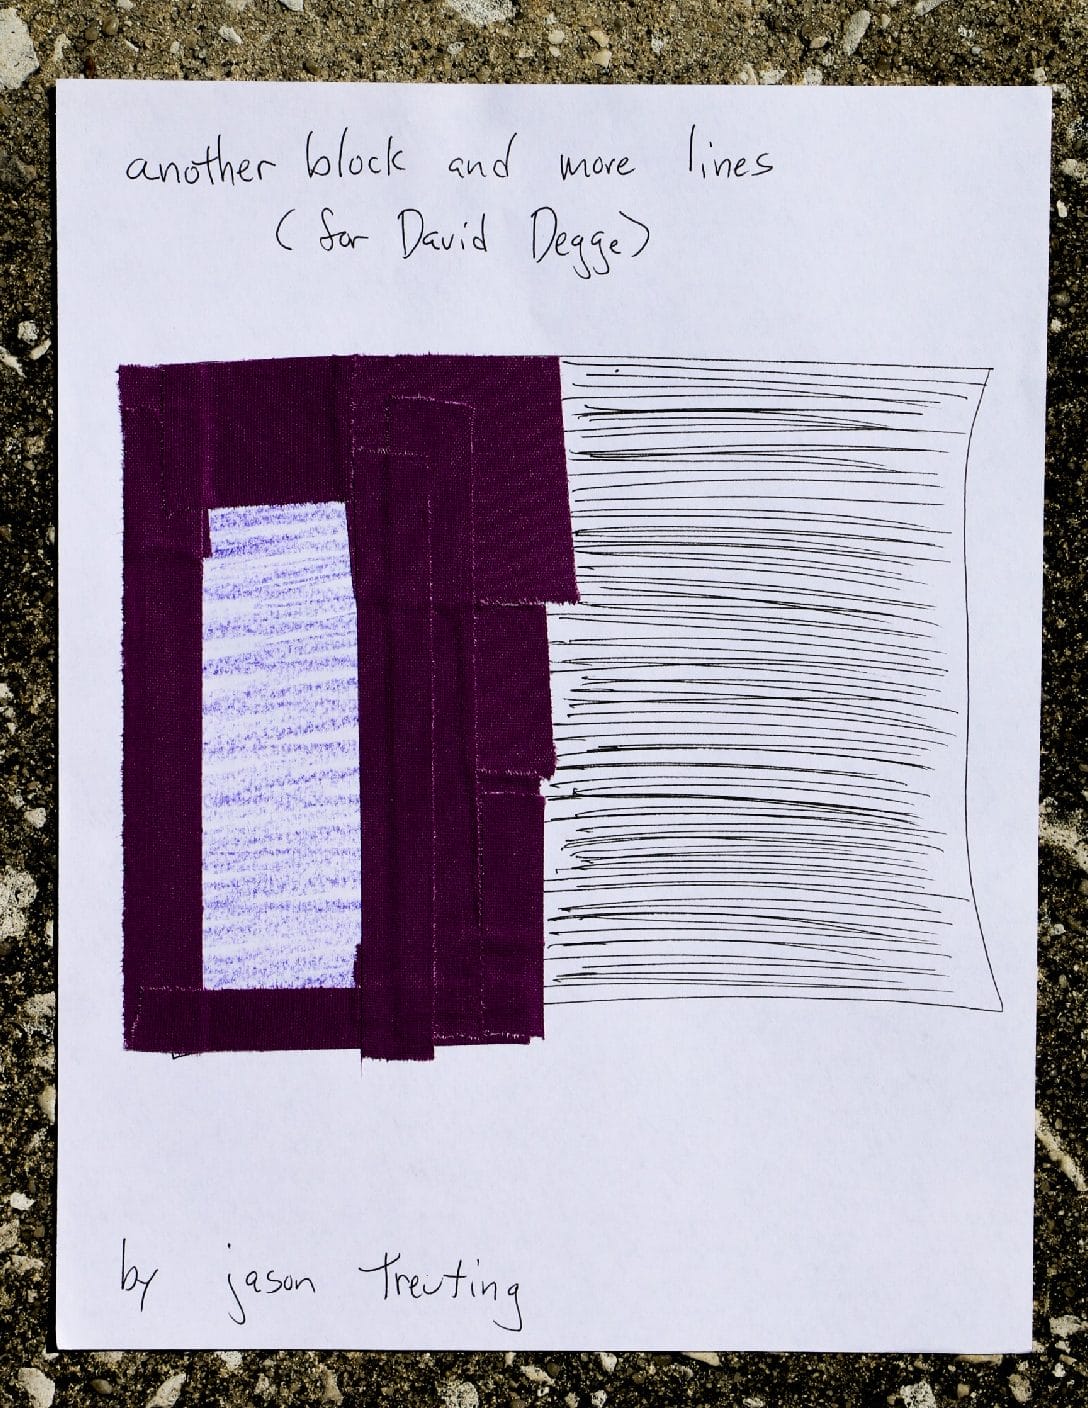 another block and more lines
(for David Degge)
by jason treuting